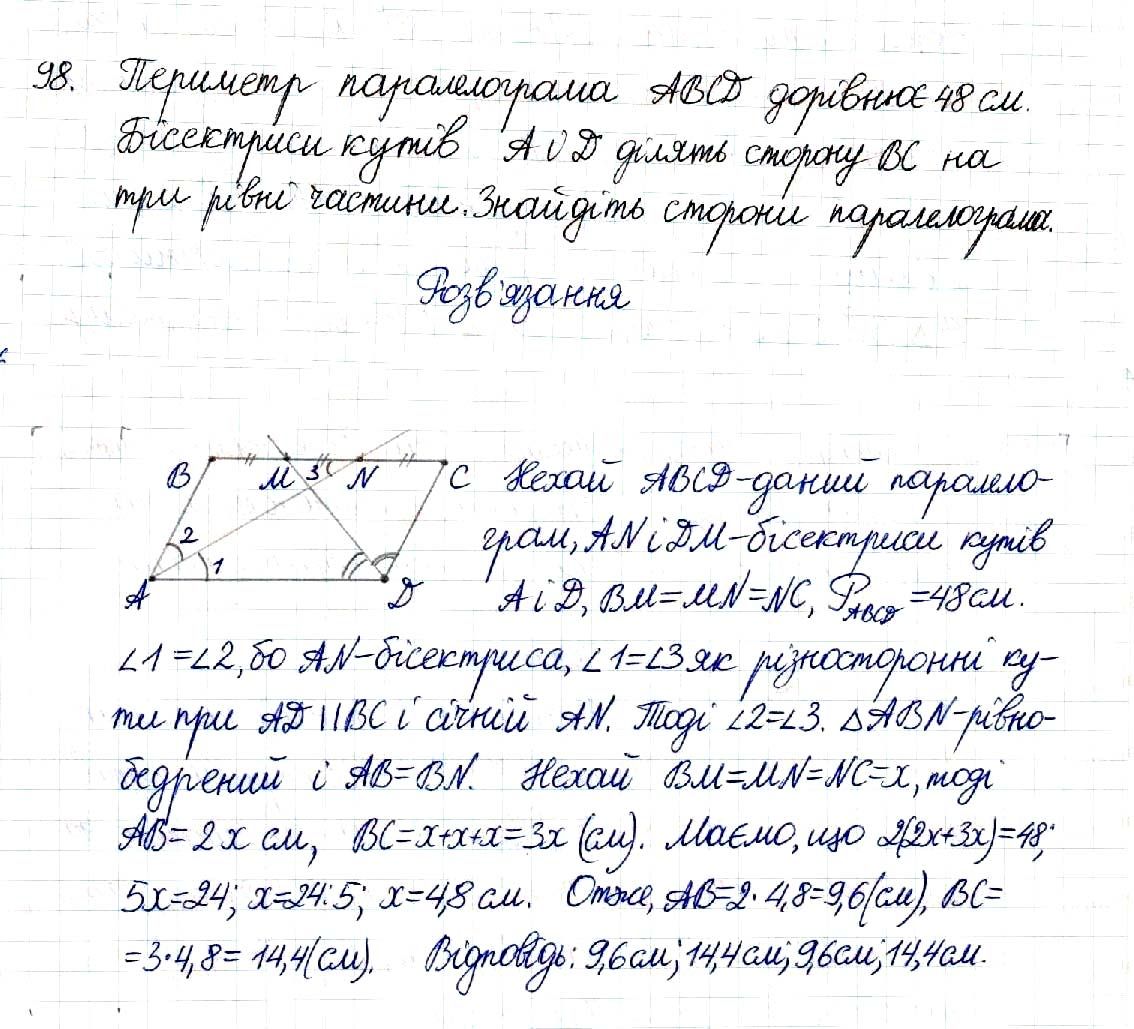 98. Периметр паралелограма ABCD дорівнює 48 см.
Бісектриси кутів A і D ділять сторону BC на
три рівні частини. Знайдіть сторони паралелограма.
Розв'язання
B M 3 N C
2
1
A D
Нехай ABCD-даний паралело-
грам, AN і DM-бісектриси кутів
A і D, BM=MN=NC, P_ABCD=48см.
∠1=∠2, бо AN-бісектриса, ∠1=∠3 як різносторонні ку-
ти при AD||BC і січній AN. Тоді ∠2=∠3. △ABN-рівно-
бедрений і AB=BN. Нехай BM=MN=NC=x, тоді
AB=2x см, BC=x+x+x=3x (см). Маємо, що 2(2x+3x)=48;
5x=24; x=24:5; x=4,8 см. Отже, AB=2·4,8=9,6(см), BC=
=3·4,8=14,4(см). Відповідь: 9,6см; 14,4см; 9,6см; 14,4см.